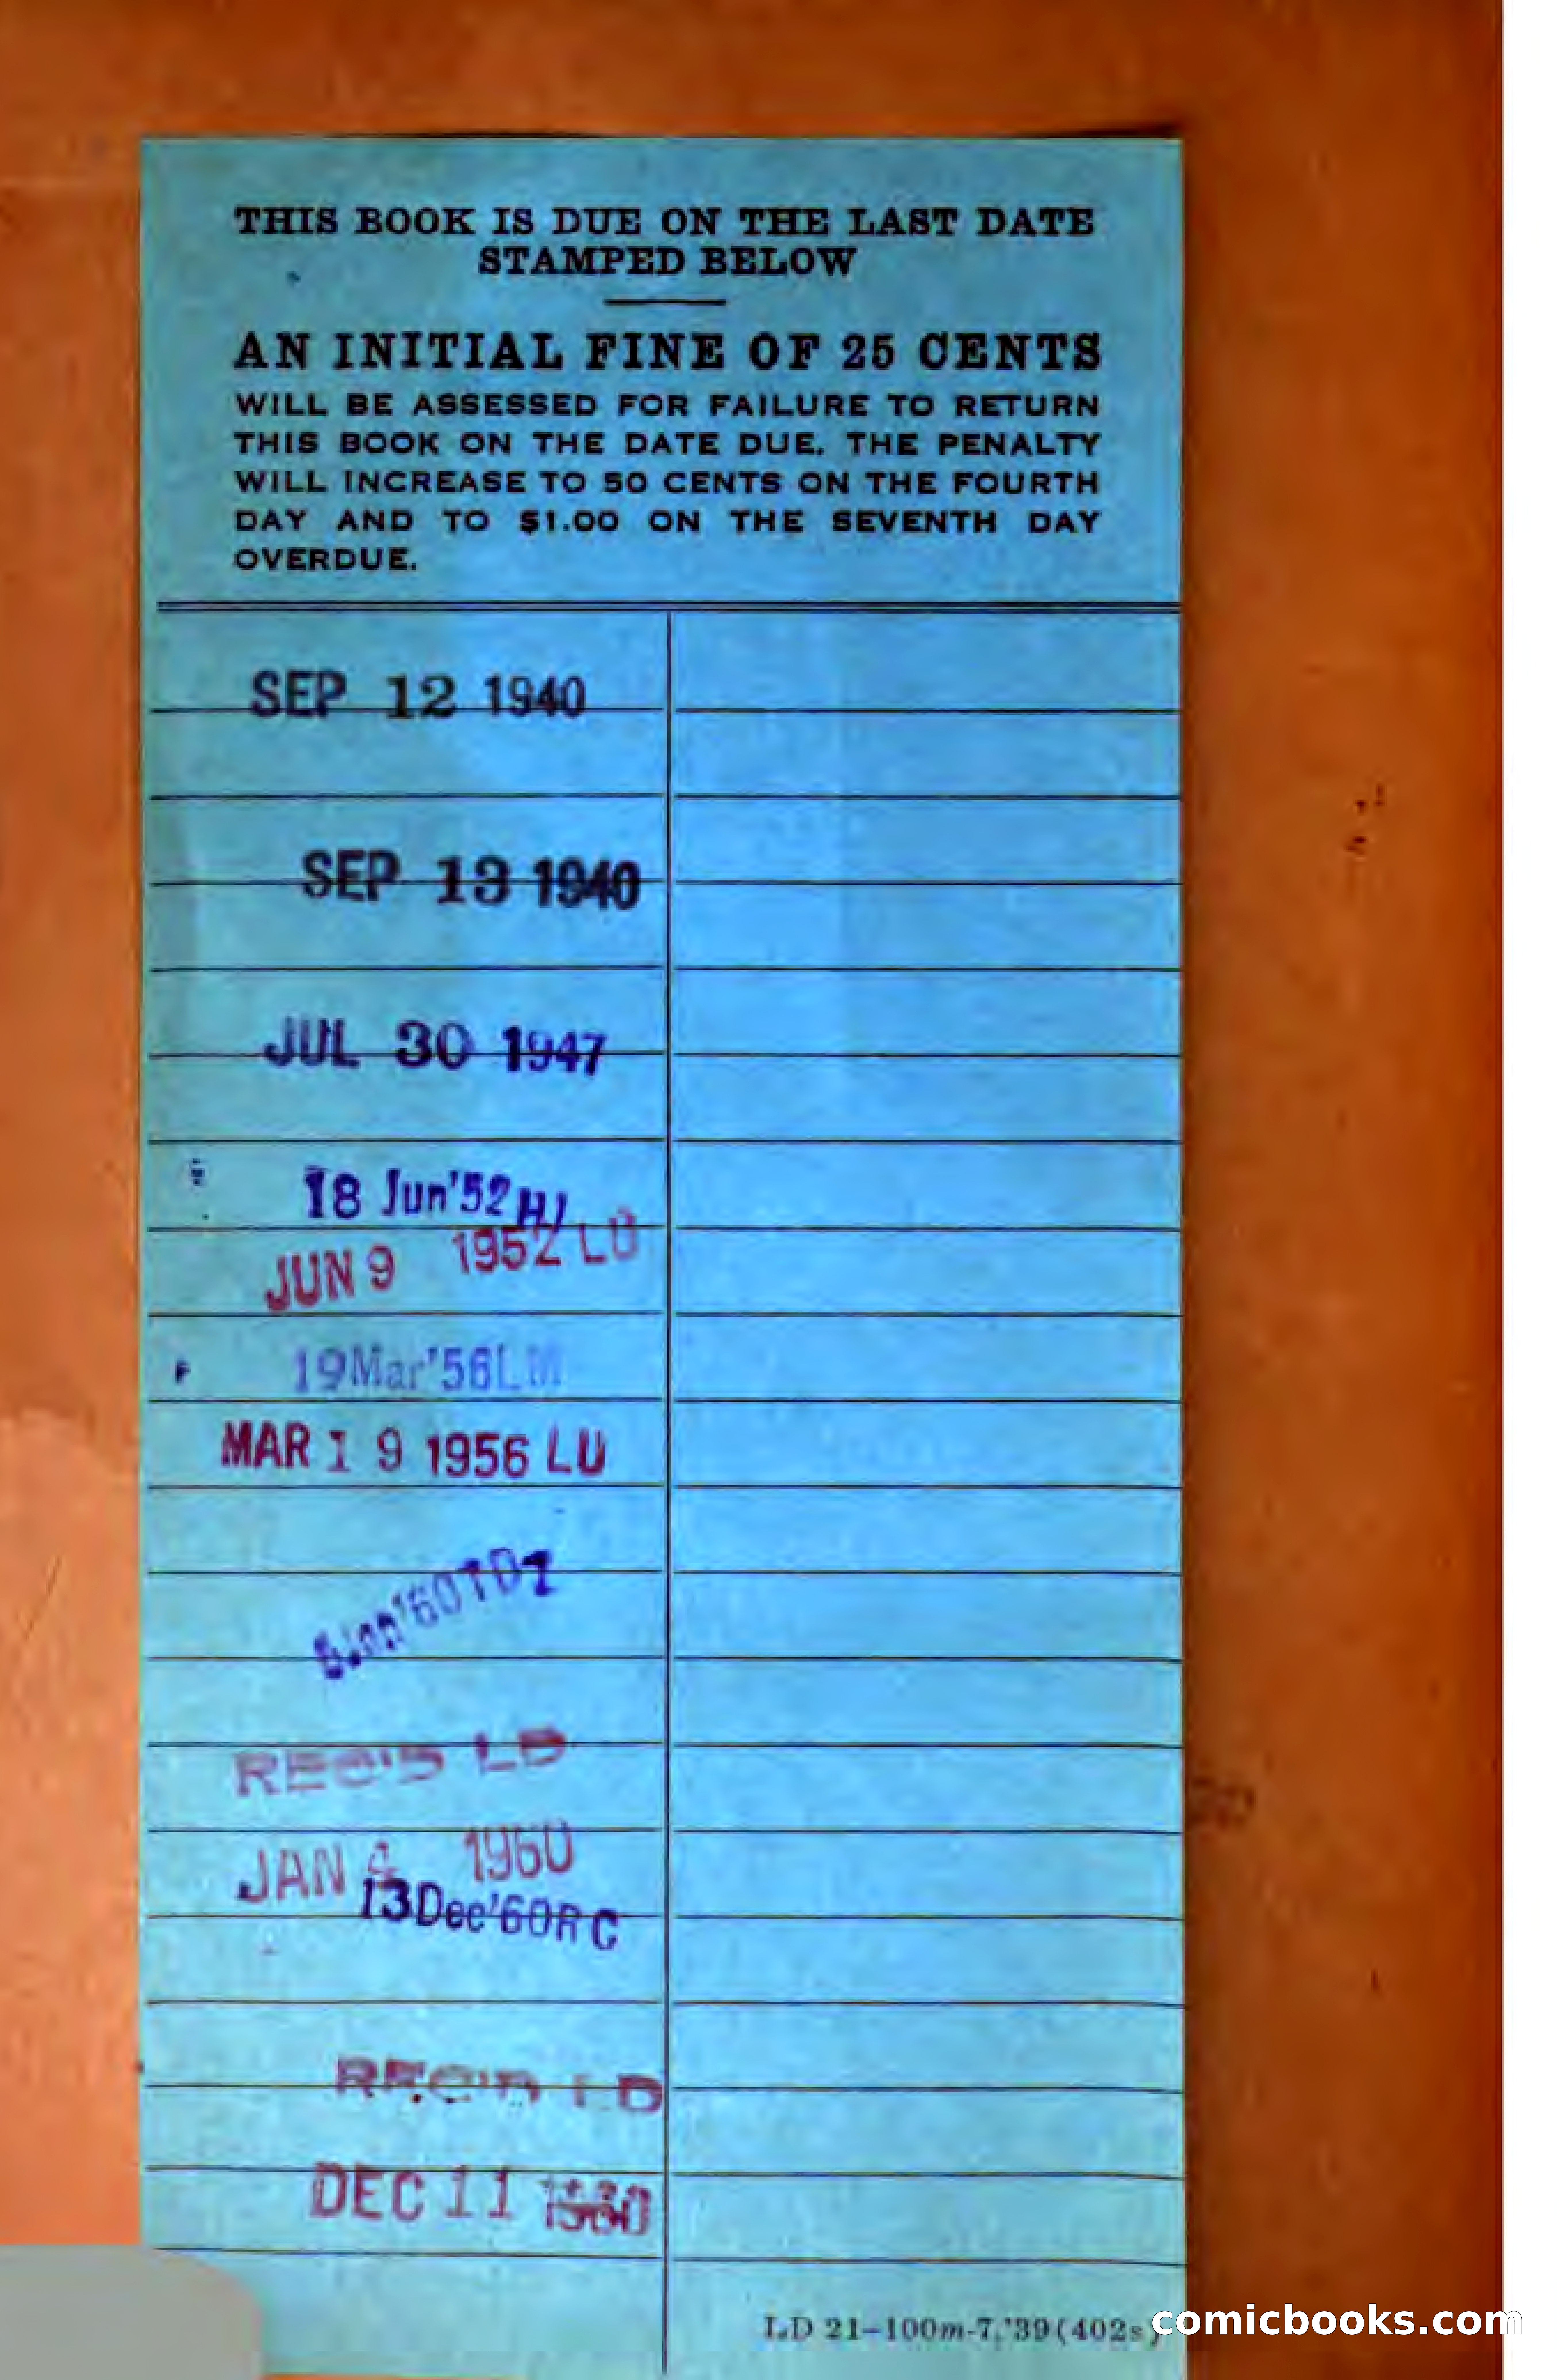 THIS BOOK IS DUE ON THE LAST DATE
STAMPED BELOW
AN INITIAL FINE OF 25 CENTS
WILL BE ASSESSED FOR FAILURE TO RETURN
THIS BOOK ON THE DATE DUE. THE PENALTY
WILL INCREASE TO 50 CENTS ON THE FOURTH
DAY AND TO $1.00 ON THE SEVENTH DAY
OVERDUE.
SEP 12 1940
SEP 13 1940
JUL 30 1947
18 Jun'52HJ
JUN 9 1952 LU
19Mar'56LM
MAR 19 1956 LU
'60
REC'D LD
JAN 4 1960
13Dec'60RC
REC'D LD
DEC 11 1960
LD 21-100m-7,'39(402s)
comicbooks.com